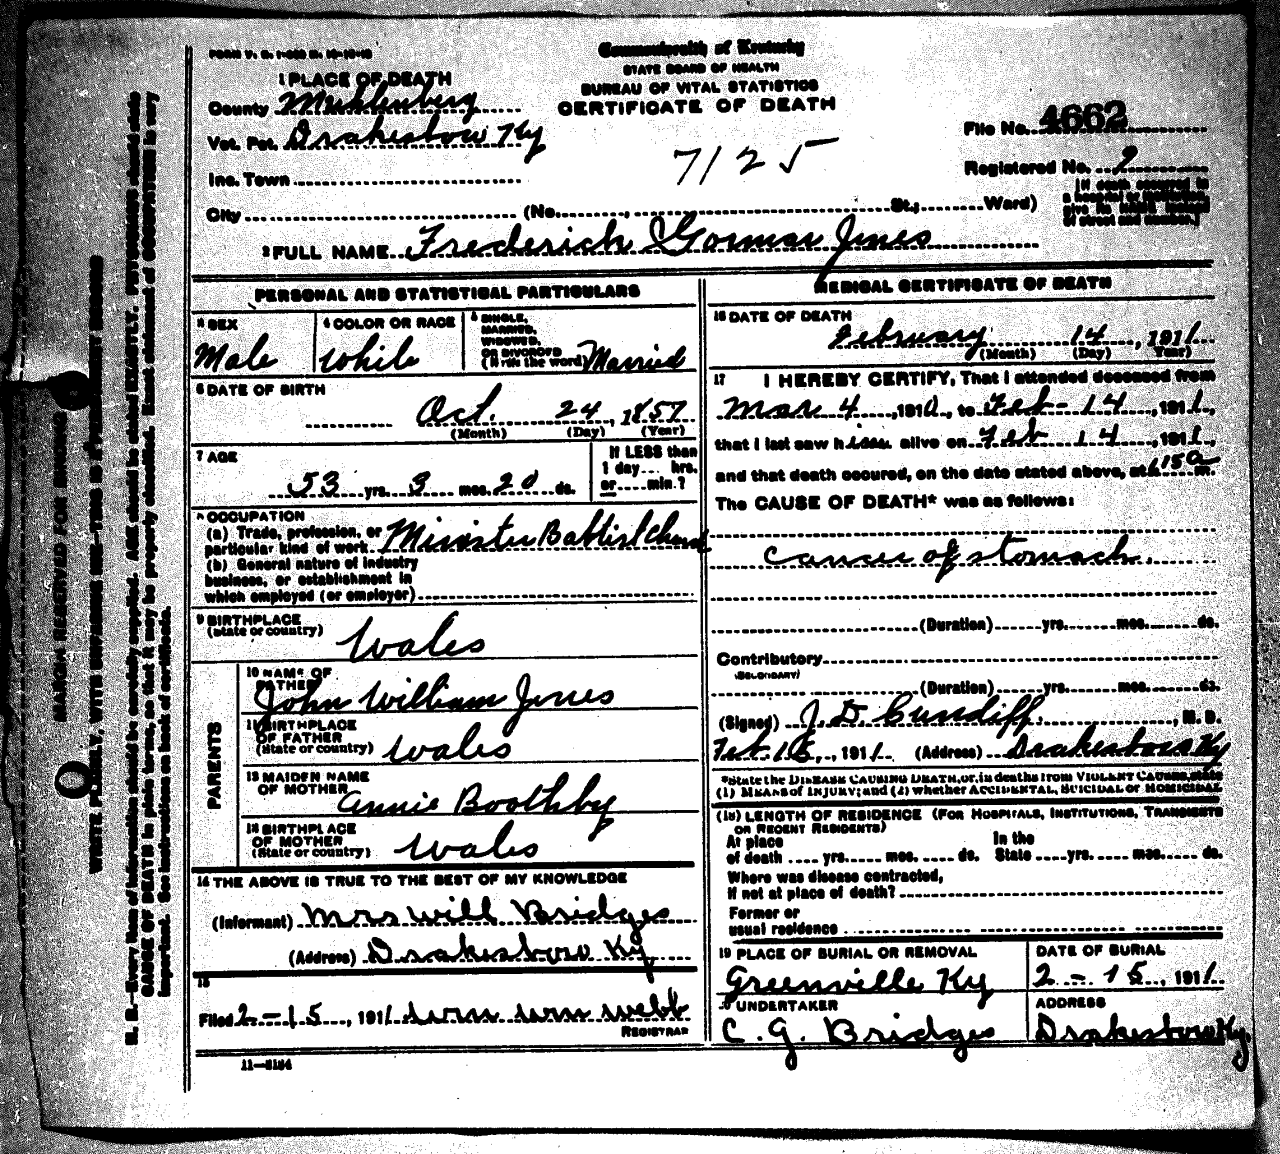 FORM V. S. 1-
Commonwealth of Kentucky
STATE BOARD OF HEALTH
BUREAU OF VITAL STATISTICS
CERTIFICATE OF DEATH
1 PLACE OF DEATH
County Muhlenberg
Vot. Pct. Drakesboro Ky
Inc. Town
City (No. , St.; Ward)
File No. 4662
Registered No. 2
[If death occurred in
a hospital or institution,
give its NAME instead
of street and number.]
7125
2 FULL NAME Frederick Gorman Jones
PERSONAL AND STATISTICAL PARTICULARS
3 SEX
Male
4 COLOR OR RACE
White
5 SINGLE,
MARRIED,
WIDOWED,
OR DIVORCED
(Write the word) Married
6 DATE OF BIRTH
Oct. 24, 1857
(Month) (Day) (Year)
7 AGE
53 yrs. 3 mos. 20 ds.
If LESS than
1 day... hrs.
or... min.?
8 OCCUPATION
(a) Trade, profession, or
particular kind of work Minister Babtist Church
(b) General nature of industry
business, or establishment in
which employed (or employer)
9 BIRTHPLACE
(State or country) Wales
PARENTS
10 NAME OF
FATHER
John William Jones
11 BIRTHPLACE
OF FATHER
(State or country) Wales
12 MAIDEN NAME
OF MOTHER
Annie Boothby
13 BIRTHPLACE
OF MOTHER
(State or country) Wales
14 THE ABOVE IS TRUE TO THE BEST OF MY KNOWLEDGE
(Informant) Mrs Will Bridges
(Address) Drakesboro Ky
15
Filed 2-15, 1911 Webb
REGISTRAR
11-8184
MEDICAL CERTIFICATE OF DEATH
16 DATE OF DEATH
February 14, 1911
(Month) (Day) (Year)
17 I HEREBY CERTIFY, That I attended deceased from
Mar 4, 1910, to Feb-14, 1911,
that I last saw him alive on Feb 14, 1911,
and that death occured, on the date stated above, at 115a m.
The CAUSE OF DEATH* was as follows:
Cancer of stomach.
(Duration) yrs. mos. ds.
Contributory
(SECONDARY)
(Duration) yrs. mos. ds.
(Signed) J. D. Cundiff, M. D.
Feb 15, 1911 (Address) Drakesboro Ky
*State the DISEASE CAUSING DEATH, or, in deaths from VIOLENT CAUSES, state
(1) MEANS of INJURY; and (2) whether ACCIDENTAL, SUICIDAL or HOMICIDAL
(18) LENGTH OF RESIDENCE (FOR HOSPITALS, INSTITUTIONS, TRANSIENTS
OR RECENT RESIDENTS)
At place
of death yrs. mos. ds.
In the
State yrs. mos. ds.
Where was disease contracted,
if not at place of death?
Former or
usual residence
19 PLACE OF BURIAL OR REMOVAL
Greenville Ky
DATE OF BURIAL
2-15, 1911
20 UNDERTAKER
C. G. Bridges
ADDRESS
Drakesboro Ky.
MARGIN RESERVED FOR BINDING
WRITE PLAINLY, WITH UNFADING INK—THIS IS A PERMANENT RECORD
N. B.—Every item of information should be carefully supplied. AGE should be stated EXACTLY. PHYSICIANS should state
CAUSE OF DEATH in plain terms, so that it may be properly classified. Exact statement of OCCUPATION is very
important. See instructions on back of certificate.